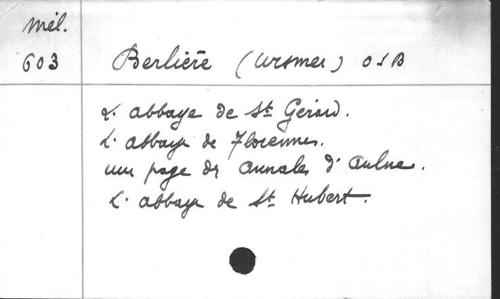 Mél.
603
Berlière (Ursmer) OSB
L'abbaye de St Gérard.
L'abbaye de Florennes.
une page des Annales d'Aulne.
L'abbaye de St Hubert.